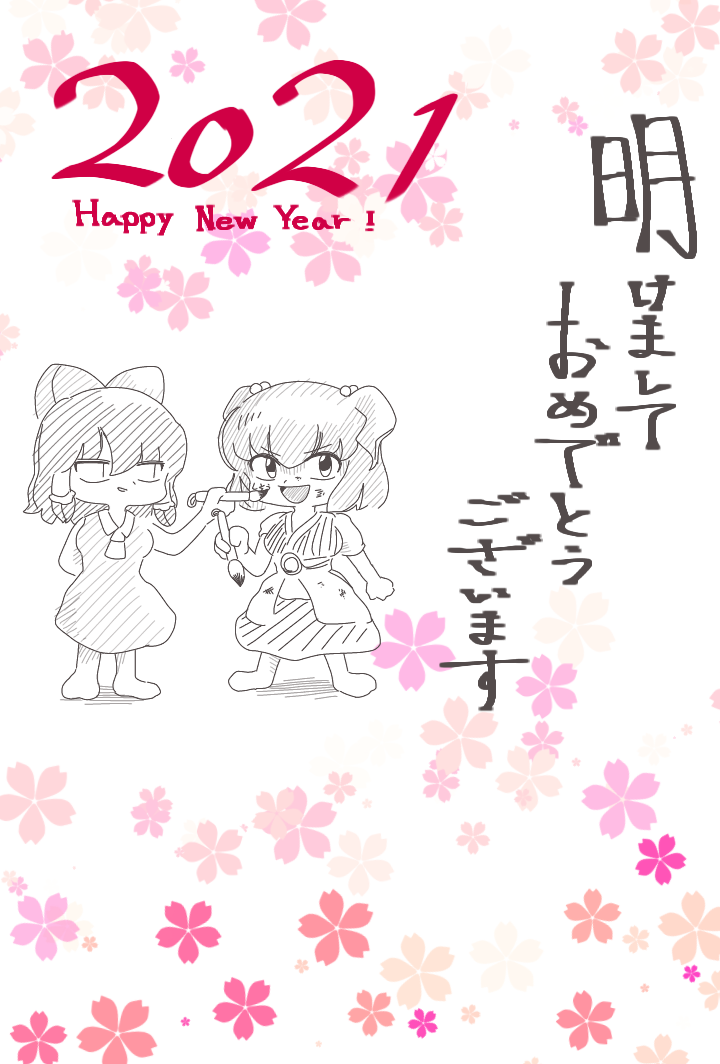 2021
Happy New Year!
明けまして
おめでとう
ございます